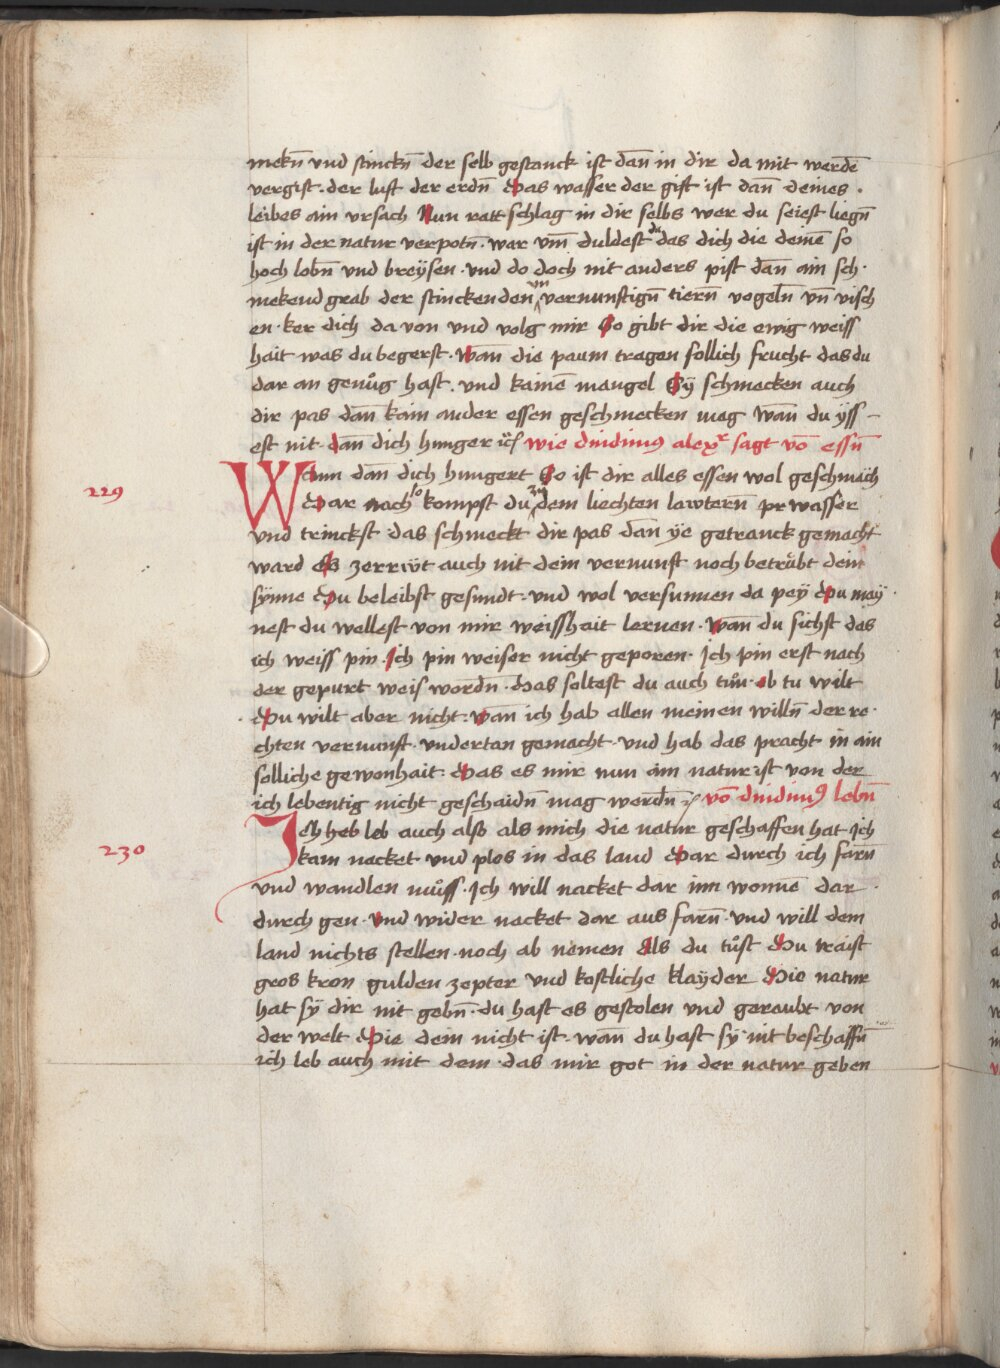 mekn̄ vnd stinckn̄ der selb gestanck ist dan̄ in dir da mit werdē
vergift · der luft der erdn̄ Das wasser der gift ist dan̄ deines ·
leibes ain vrsach Nun ratt schlag in dir selbs wer du seiest liegn̄
ist in der natur verpotn̄ · war vm̄ duldest du das dich die deinē so
hoch lobn̄ vnd breÿsen · vnd do doch nit anders pist dan̄ ain sch·
mekend grab der stinckenden vn vernunftign̄ tiern̄ vogeln̄ vn̄ visch
en · ker dich da von vnd volg mir So gibt dir die ewig weiss
hait was du begerst · Wan̄ die paum tragen sollich frucht das du
dar an genůg hast · vnd kainē mangel Sÿ schmecken auch
dir pas dan̄ kain ander essen geschmecken mag wan̄ du ÿss –
est nit · dan̄ dich hunger ꝛc̄ wie dindimꝰ alexr sagt vō essn̄
229 Wann dan̄ dich hungert So ist dir alles essen wol geschmach
Dar nach so kompst du zu dem liechten lawtern̄ pr wasser
vnd trinckst · das schmeckt dir pas dan̄ ÿe getranck gemacht
ward Es zerrütt auch nit dein vernunft noch betrůbt dein
sÿnne Du beleibst gesundt · vnd wol versunnen da peÿ Du maÿ ·
nest du wellest von mir weisshait lernen · Wan̄ du sichst das
ich weiss pin · Ich pin weiser nicht geporen · Ich pin erst nach
der gepurt weis wordn̄ · Das soltest du auch tůn · ob tu wilt
· Du wilt aber nicht · Wan̄ ich hab allen meinen willn̄ der re ·
chten vernunft · vndertan gemacht · vnd hab das pracht in ain
solliche gewonhait · Das es mir nun ain natur ist von der
ich lebentig nicht geschaidn̄ mag werdn̄ ꝛc̄ vō dindimꝰ lebn̄
230 Ich heb leb auch also als mich die natur geschaffen hat Ich
kam nacket vnd plos in das land Dar durch ich farn̄
vnd wandlen můss · Ich will nacket dar inn wonnē dar ·
durch gen · vnd wider nacket dar aus farn̄ · vnd will dem
land nichts stellen · noch ab nemen Als du tůst Du traist
gros kron gulden zepter vnd kostliche klaÿder Die natur
hat sÿ dir nit gebn̄ · du hast es gestolen vnd geraubt von
der welt Die dein nicht ist · wan̄ du hast sÿ nit beschaffn̄
ich leb auch mit dem · das mir got in der natur geben